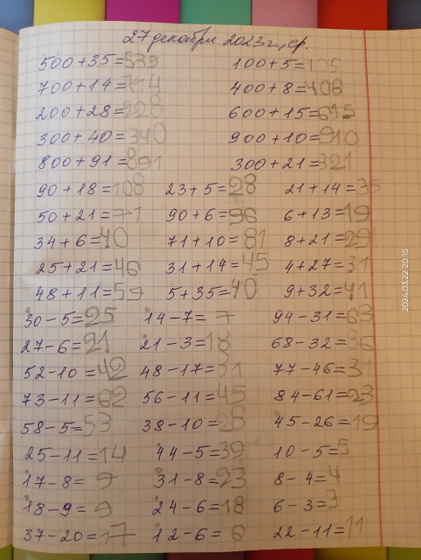 27 декабря 2023 г., ср.
500+35=535 100+5=105
700+14=714 400+8=408
200+28=228 600+15=615
300+40=340 900+10=910
800+91=891 300+21=321
90+18=108 23+5=28 21+14=35
50+21=71 90+6=96 6+13=19
34+6=40 71+10=81 8+21=29
25+21=46 31+14=45 4+27=31
48+11=59 5+35=40 9+32=41
30-5=25 14-7=7 94-31=63
27-6=21 21-3=18 68-32=36
52-10=42 48-17=31 77-46=31
73-11=62 56-11=45 84-61=23
58-5=53 38-10=28 45-26=19
25-11=14 44-5=39 10-5=5
17-8=9 31-8=23 8-4=4
18-9=9 24-6=18 6-3=3
37-20=17 12-6=6 22-11=11
2024.03.22 20:15